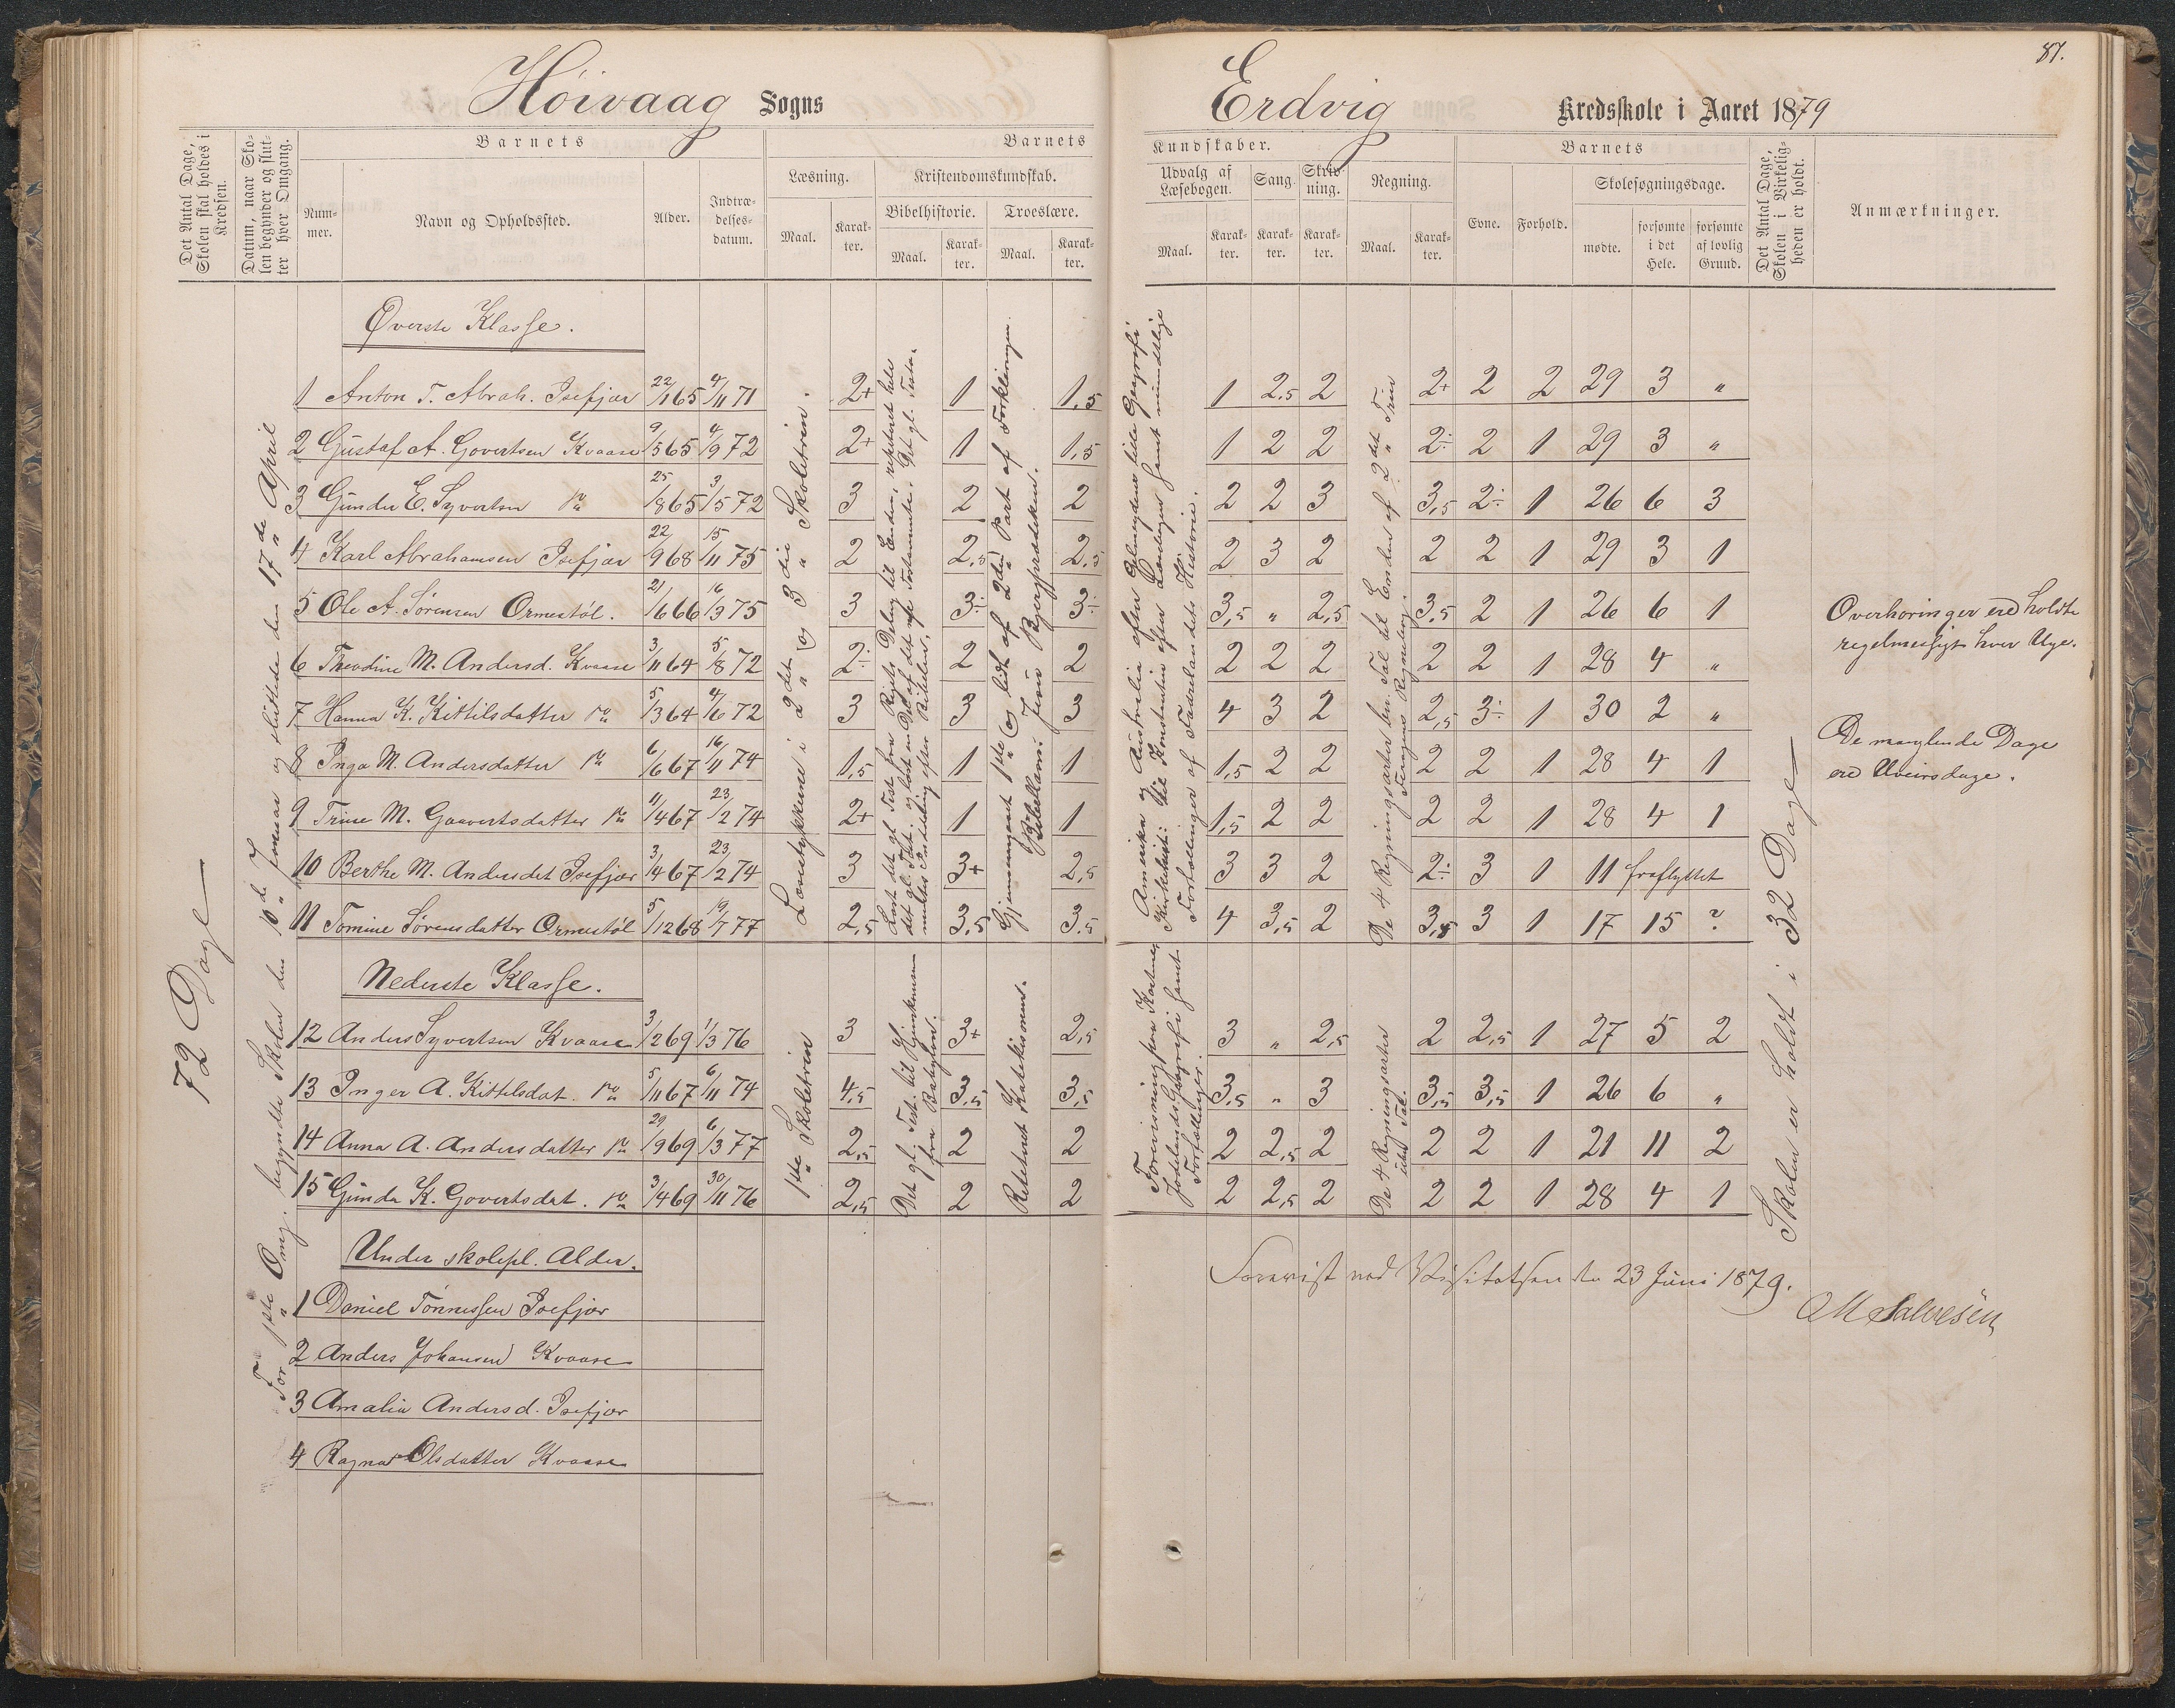 Höivaag Sogns
Erdvig Kredsskole i Aaret 1879
87.
Det Antal Dage, Skolen skal holdes i Kredsen.
Datum, naar Skolen begynder og slutter hver Omgang.
Barnets
Nummer.
Navn og Opholdssted.
Alder.
Indtrædelsesdatum.
Barnets
Læsning.
Maal.
Karakter.
Kristendomskundskab.
Bibelhistorie.
Maal.
Karakter.
Troeslære.
Maal.
Karakter.
Kundskaber.
Udvalg af Læsebogen.
Maal.
Karakter.
Sang.
Karakter.
Skrivning.
Karakter.
Regning.
Maal.
Karakter.
Barnets
Evne.
Forhold.
Skolesøgningsdage.
mødte.
forsømte i det Hele.
forsømte af lovlig Grund.
Det Antal Dage, Skolen i Virkeligheden er holdt.
Anmærkninger.
72 Dage
For 1ste Omg. begyndte Skolen den 10de Januar og sluttede den 17de April
Øverste Klasse.
1 Anton T. Abrah. Isefjær 22/11 65 4/11 71 2+ 1 1,5 1 2,5 2 2+ 2 2 29 3 "
2 Gustaf A. Govertsen Kvaase 9/5 65 4/9 72 2+ 1 1,5 1 2 2 2÷ 2 1 29 3 "
3 Gunder E. Syvertsen do 25/8 65 3/5 72 3 2 2 2 2 3 3,5 2÷ 1 26 6 3
4 Karl Abrahamsen Isefjær 22/9 68 15/11 75 2 2,5 2,5 2 3 2 2 2 1 29 3 1
5 Ole A. Sørensen Ormestøl. 21/6 66 16/3 75 3 3÷ 3÷ 3,5 " 2,5 3,5 2 1 26 6 1
6 Theodine M. Andersd. Kvaase 3/11 64 5/8 72 2÷ 2 2 2 2 2 2 2 1 28 4 "
7 Hanna K. Kittilsdatter do 5/3 64 4/6 72 3 3 3 4 3 2 2,5 3÷ 1 30 2 "
8 Inga M. Andersdatter do 6/6 67 16/11 74 1,5 1 1 1,5 2 2 2 2 1 28 4 1
9 Trine M. Goavertsdatter do 11/4 67 23/2 74 2+ 1 1 1,5 2 2 2 2 1 28 4 1
10 Berthe M. Andersdat Isefjær 3/4 67 23/2 74 3 3+ 2,5 3 3 2 2÷ 3 1 11 fraflyttet
11 Tomine Sørensdatter Ormestøl 5/12 68 19/7 77 2,5 3,5 3,5 4 3,5 2 3,5 3 1 17 15 ?
Læsestykkerne i 2det og 3die Skoletrin.
Gjennemgaaet 1ste og lidt af 2den Part af Forklaringen
Bibellæren: Jesu Bjergprædiken.
Fortællinger af Fædrelandets Historie.
De 4 Regningsarter
Overhøringer ere holdte
regelmæsigt hver Uge.
De manglende Dage
ere Uveirsdage.
Skolen er holdt i 32 Dage
Nederste Klasse.
12 Anders Syvertsen Kvaase 3/2 69 1/3 76 3 3+ 2,5 3 " 2,5 2 2,5 1 27 5 2
13 Inger A. Kittilsdat. do 5/11 67 6/11 74 4,5 3,5 3,5 3,5 " 3 3,5 3,5 1 26 6 "
14 Anna A. Andersdatter do 29/9 69 6/3 77 2,5 2 2 2 2,5 2 2 2 1 21 11 2
15 Gunda K. Govertsdat. do 3/4 69 30/11 76 2,5 2 2 2 2,5 2 2 2 1 28 4 1
1ste Skoletrin
Det gl. Test. til Hjemkomsten
fra Babylon.
Katekismen.
De 4 Regningsarter
Under skolepl. Alder.
1 Daniel Tønnessen Isefjær
2 Anders Johansen Kvaase
3 Amalia Andersd. Isefjær
4 Ragna Olsdatter Kvaase
Forevist ved Visitatsen den 23 Juni 1879.
M Salvesen